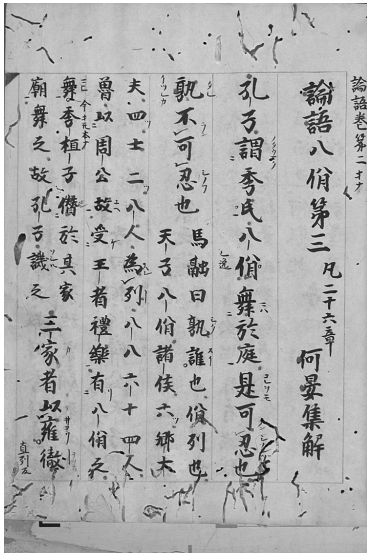 論語卷第二
論語八佾第三 凡二十六章 何晏集解
孔子謂季氏八佾舞於庭是可忍也
孰不可忍也 馬融曰孰誰也佾列也
天子八佾諸侯六卿大
夫四士二八人為列八八六十四人
魯以周公故受王者禮樂有八佾之
舞季桓子僭於其家
廟舞之故孔子譏之 三家者以雍徹